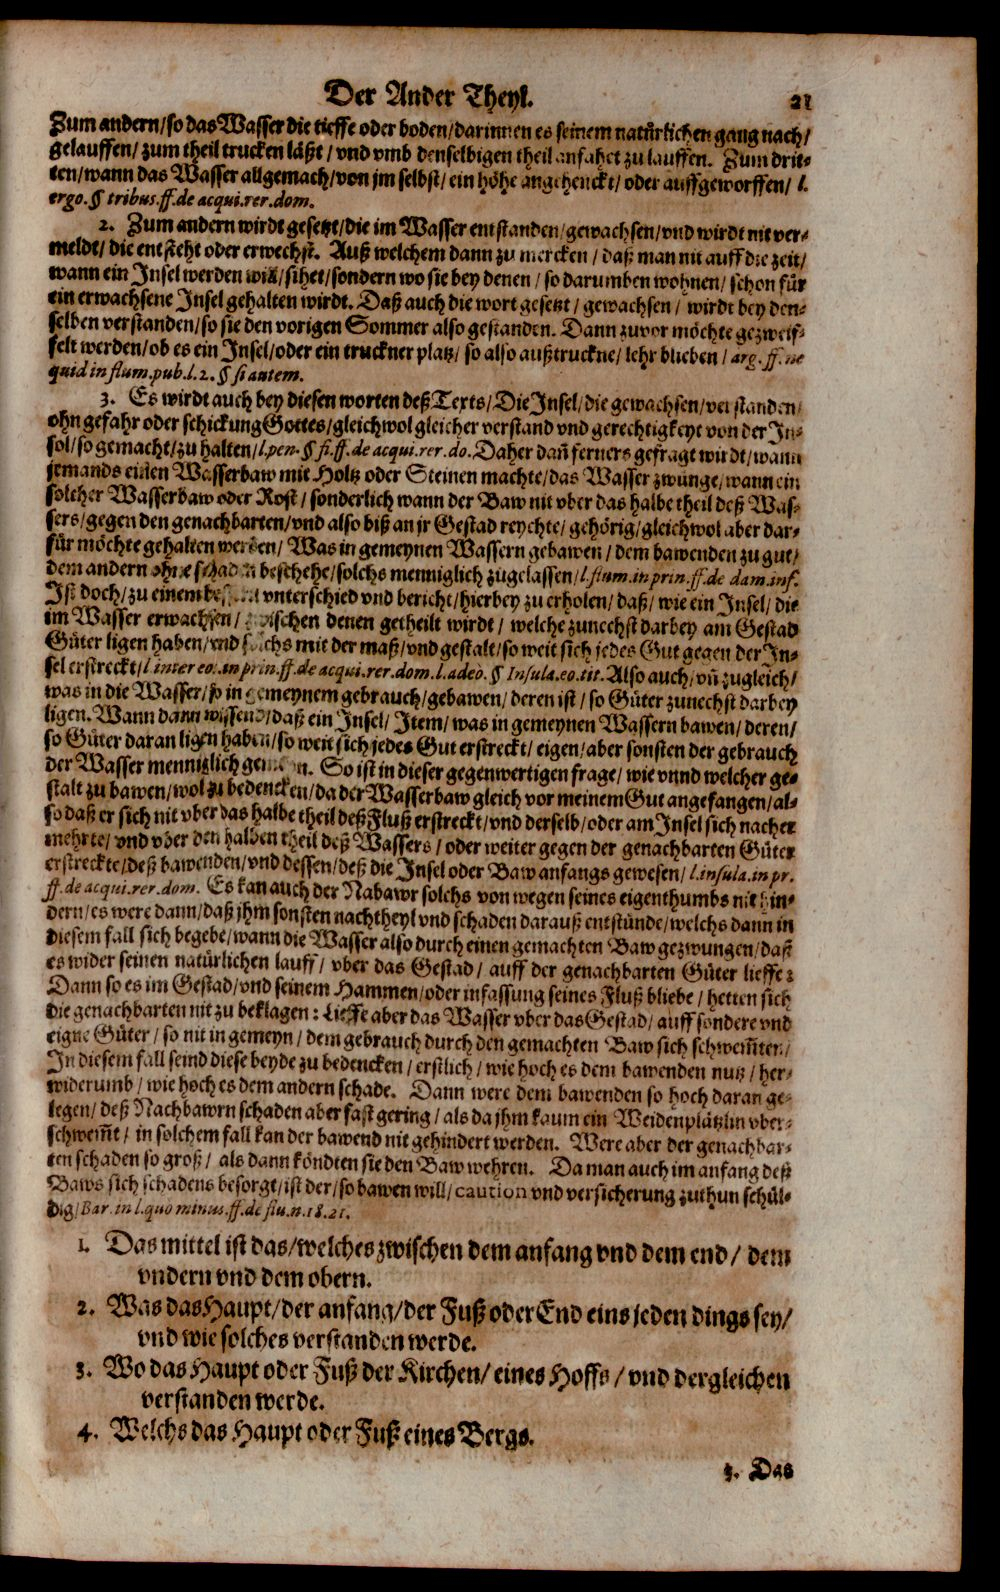 Der Ander Theyl. 21
Zum andern/so das Wasser die tieffe oder boden/darinnen es seinem natürlichen gang nach/
gelauffen/zum theil trucken läßt/vnd vmb denselbigen theil anfahet zu lauffen. Zum drit-
ten/wann das Wasser allgemach/von jm selbst/ein höhe angehenckt/oder auffgeworffen/l.
ergo.§ tribus.ff.de acqui.rer.dom.
2. Zum andern wirdt gesetzt/die im Wasser entstanden/gewachsen/vnd wirdt nit ver-
meldt/die entsteht oder erwechst. Auß welchem dann zu mercken/daß man nit auff die zeit/
wann ein Insel werden will/sihet/sondern wo sie bey denen/so darumben wohnen/schon für
ein erwachsene Insel gehalten wirdt. Daß auch die wort gesetzt/gewachsen/wirdt bey den-
selben verstanden/so sie den vorigen Sommer also gestanden. Dann zuvor möchte gezweif-
felt werden/ob es ein Insel/oder ein truckner platz/so also außtruckne/lehr blieben/arg.ff.ne
quid in flum.pub.l.2.§ si autem.
3. Es wirdt auch bey diesen worten deß Texts/Die Insel/die gewachsen/verstanden/
ohn gefahr oder schickung Gottes/gleichwol gleicher verstand vnd gerechtigkeyt von der In-
sol/so gemacht/zu halten/l.pen.§ fi.ff.de acqui.rer.do. Daher dañ ferners gefragt wirdt/wann
jemands einen Wasserbaw mit Holtz oder Steinen machte/das Wasser zwünge/wann ein
solcher Wasserbaw oder Rost/sonderlich wann der Baw nit vber das halbe theil deß Was-
sers/gegen den genachbarten/vnd also biß an jr Gestad reychte/gehörig/gleichwol aber dar-
für möchte gehalten werden/Was in gemeynen Wassern gebawen/dem bawenden zu gut/
dem andern ohne schaden beschehe/solchs menniglich zugelassen/l.flum.in prin.ff.de dam.inf.
Ist doch/zu einem vnterschied vnd bericht/hierbey zu erholen/daß/wie ein Insel/die
im Wasser erwachsen/zwischen denen getheilt wirdt/welche zunechst darbey am Gestad
Güter ligen haben/vnd solchs mit der maß/vnd gestalt/so weit sich jedes Gut gegen der In-
sel erstreckt/l inter eos.in prin.ff.de acqui.rer.dom.l.adeò.§ Insula.eo.tit. Also auch/vñ zugleich/
was in die Wasser/so in gemeynem gebrauch/gebawen/deren ist/so Güter zunechst darbey
ligen. Wann dann wissend/daß ein Insel/Item/was in gemeynen Wassern bawen/deren/
so Güter daran ligen haben/so weit sich jedes Gut erstreckt/eigen/aber sonsten der gebrauch
der Wasser menniglich gemeyn. So ist in dieser gegenwertigen frage/wie vnnd welcher ge-
stalt zu bawen/wol zu bedencken/da der Wasserbaw gleich vor meinem Gut angefangen/al-
so daß er sich nit vber das halbe theil deß Fluß erstreckt/vnd derselb/oder am Insel sich nacher
mehrte/vnd vber den halben theil deß Wassers/oder weiter gegen der genachbarten Güter
erstreckte/deß bawenden/vnd dessen/deß die Insel oder Baw anfangs gewesen/l.insula.in pr.
ff.de acqui.rer.dom. Es kan auch der Nabawr solchs von wegen seines eigenthumbs nit hin-
dern/es were dann/daß jhm sonsten nachtheyl vnd schaden darauß entstünde/welchs dann in
diesem fall sich begebe/wann die Wasser also durch einen gemachten Baw gezwungen/daß
es wider seinen natürlichen lauff/vber das Gestad/auff der genachbarten Güter lieffe:
Dann so es im Gestad/vnd seinem Hammen/oder infassung seines Fluß bliebe/hetten sich
die genachbarten nit zu beklagen: Lieffe aber das Wasser vber das Gestad/auff sondere vnd
eigne Güter/so nit in gemeyn/dem gebrauch durch den gemachten Baw sich schwem̃ten/
In diesem fall seind diese beyde zu bedencken/erstlich/wie hoch es dem bawenden nutz/her-
widerumb/wie hoch es dem andern schade. Dann were dem bawenden so hoch daran ge-
legen/deß Nachbawrn schaden aber fast gering/als da jhm kaum ein Weidenplätzlin vber-
schwem̃t/in solchem fall kan der bawend nit gehindert werden. Were aber der genachbar-
ten schaden so groß/als dann köndten sie den Baw wehren. Da man auch im anfang deß
Baws sich schadens besorgt/ist der/so bawen will/caution vnd versicherung zuthun schül-
dig/Bar.in l.quo minus.ff.de flu.n.18.21.
1. Das mittel ist das/welches zwischen dem anfang vnd dem end/dem
vndern vnd dem obern.
2. Was das Haupt/der anfang/der Fuß oder End eins jeden dings sey/
vnd wie solches verstanden werde.
3. Wo das Haupt oder Fuß der Kirchen/eines Hoffs/vnd dergleichen
verstanden werde.
4. Welchs das Haupt oder Fuß eines Bergs.
5. Das